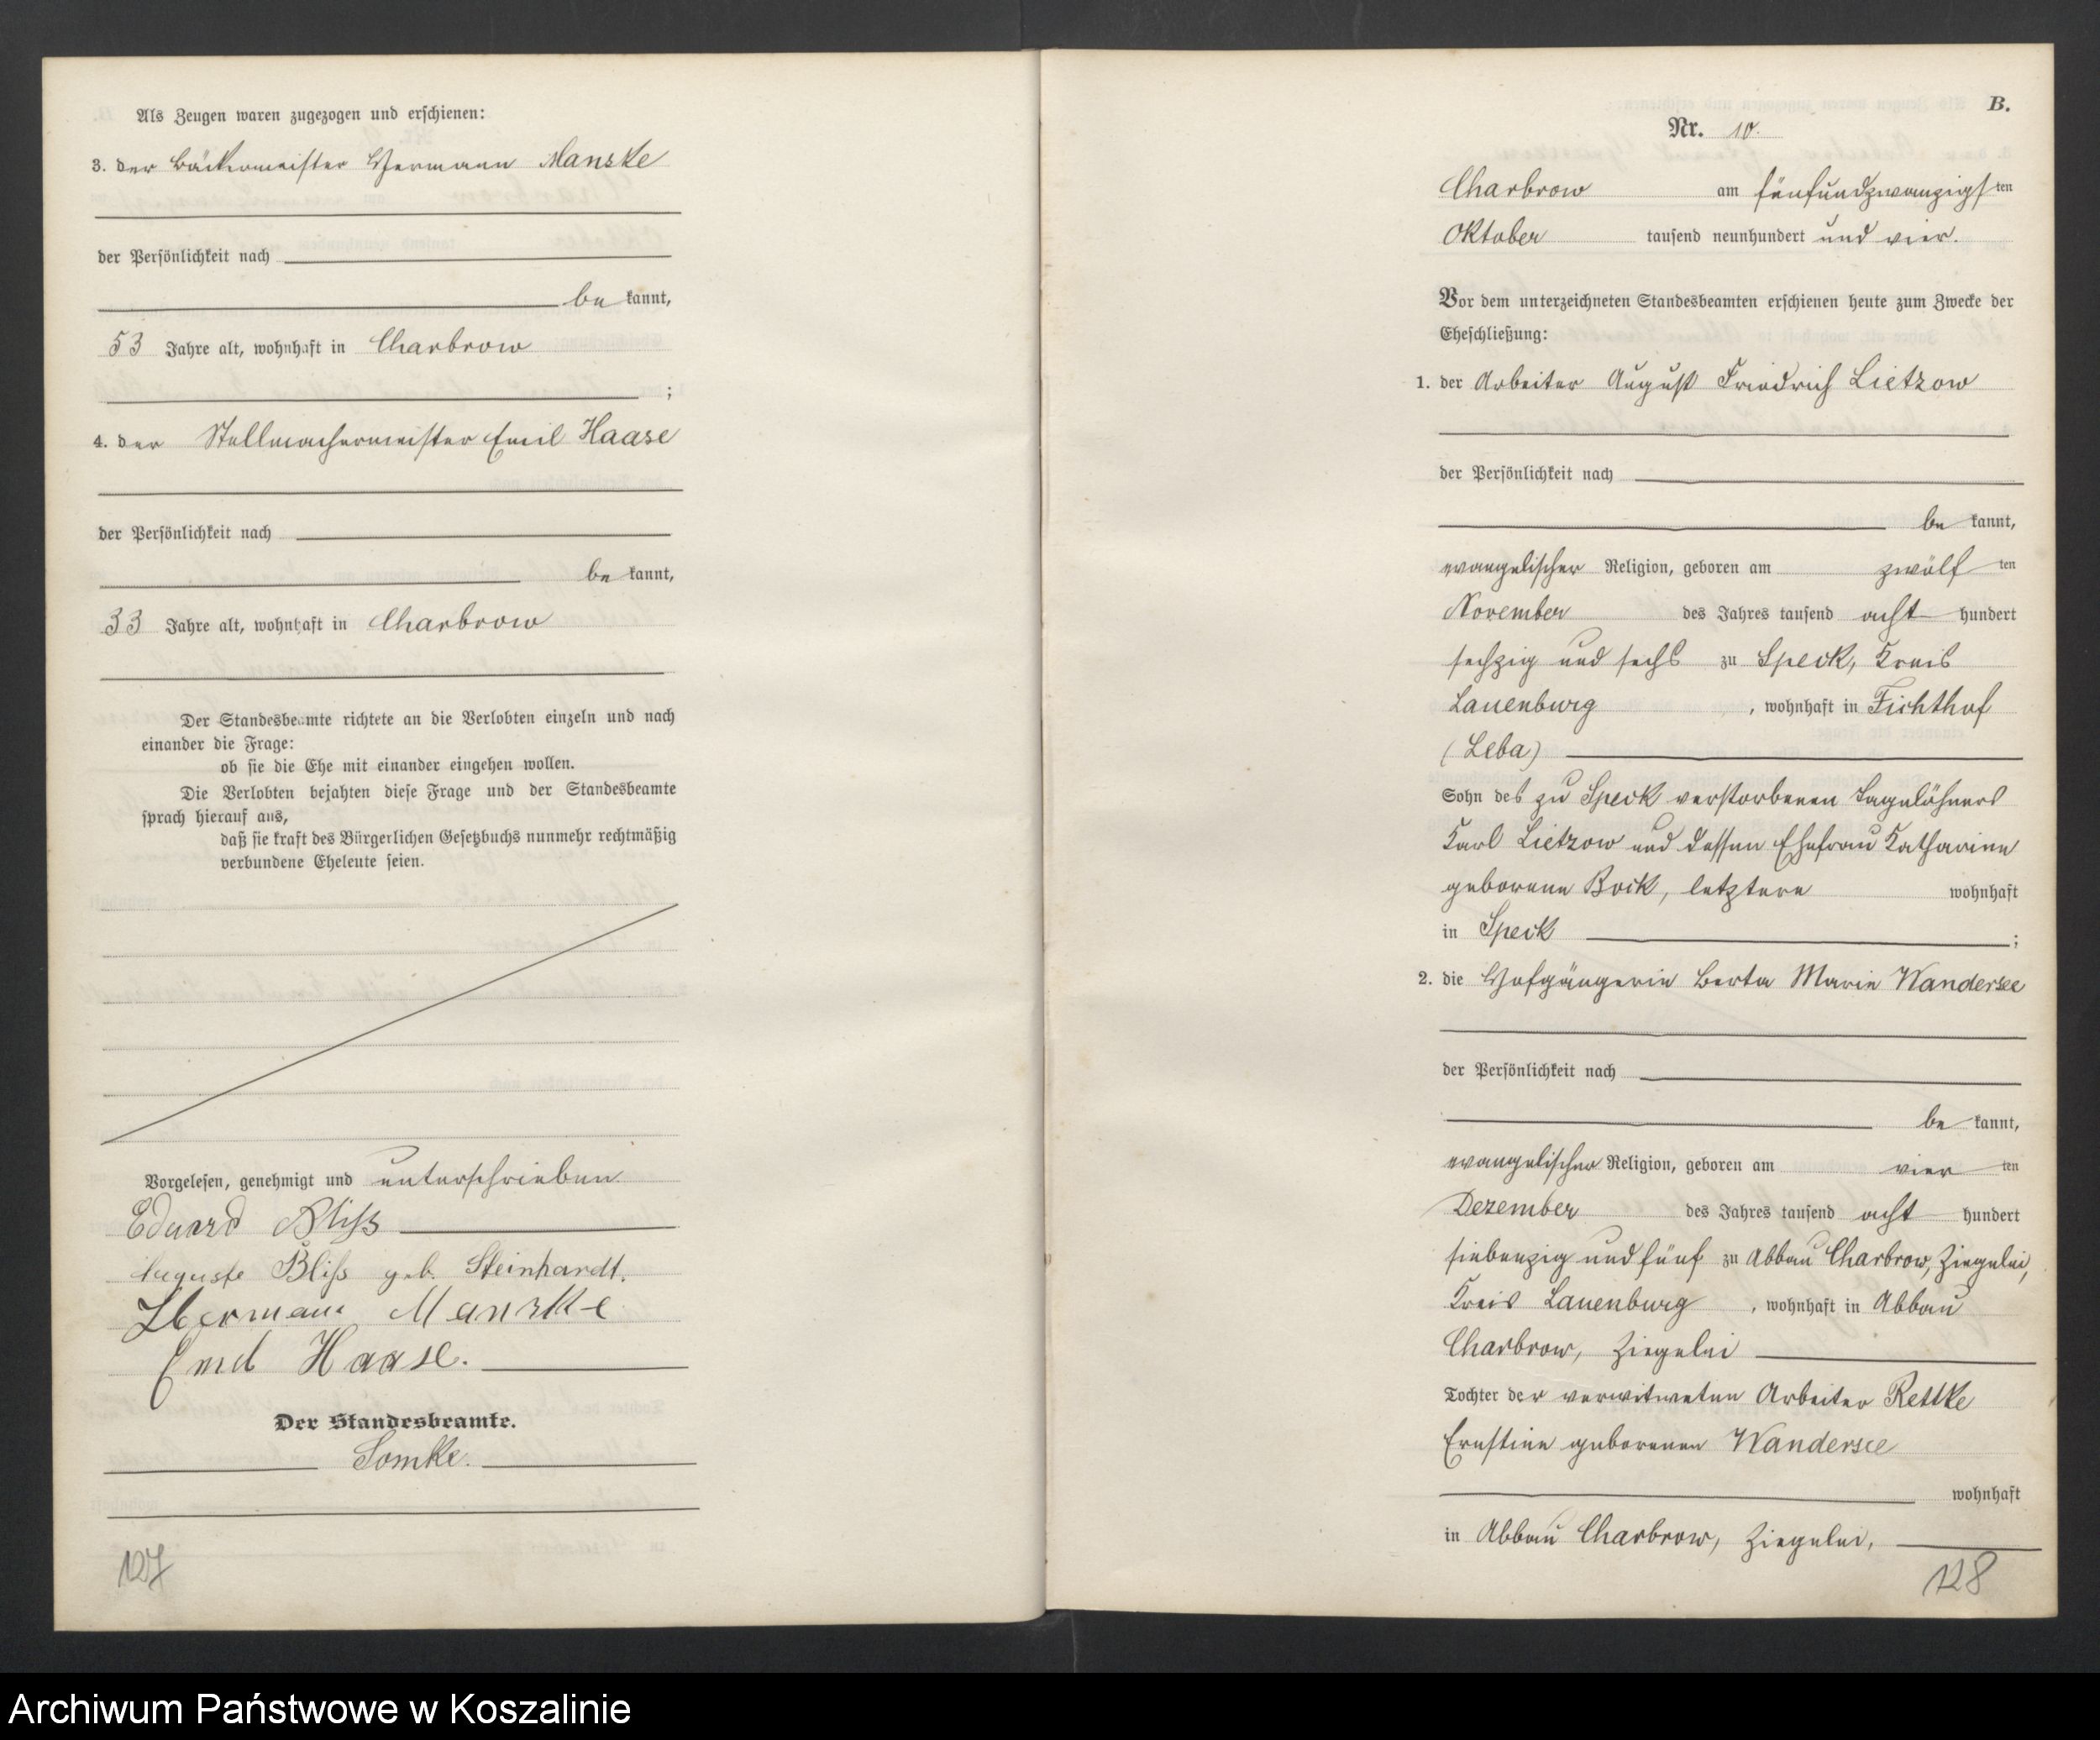 Als Zeugen waren zugezogen und erschienen:
3. der Bäckermeister Hermann Manske
der Persönlichkeit nach
be kannt,
53 Jahre alt, wohnhaft in Charbrow
;
4. der Stellmachermeister Emil Haase
der Persönlichkeit nach
be kannt,
33 Jahre alt, wohnhaft in Charbrow
Der Standesbeamte richtete an die Verlobten einzeln und nach
einander die Frage:
ob sie die Ehe mit einander eingehen wollen.
Die Verlobten bejahten diese Frage und der Standesbeamte
sprach hierauf aus,
daß sie kraft des Bürgerlichen Gesetzbuchs nunmehr rechtmäßig
verbundene Eheleute seien.
Vorgelesen, genehmigt und unterschrieben.
Eduard Bliß
Auguste Bliß geb. Steinhardt.
Hermann Manske
Emil Haase.
Der Standesbeamte.
Lomke.
127
B.
Nr. 10.
Charbrow am fünfundzwanzigsten
Oktober tausend neunhundert und vier.
Vor dem unterzeichneten Standesbeamten erschienen heute zum Zwecke der
Eheschließung:
1. der Arbeiter August Friedrich Lietzow
der Persönlichkeit nach
be kannt,
evangelischer Religion, geboren am zwölf ten
November des Jahres tausend acht hundert
sechzig und sechs zu Speck, Kreis
Lauenburg, wohnhaft in Fichthof
(Leba)
Sohn des zu Speck verstorbenen Tagelöhners
Karl Lietzow und dessen Ehefrau Katharine
geborene Bock, letztere wohnhaft
in Speck ;
2. die Hofgängerin Berta Marie Wandersee
der Persönlichkeit nach
be kannt,
evangelischer Religion, geboren am vier ten
Dezember des Jahres tausend acht hundert
siebenzig und fünf zu Abbau Charbrow, Ziegelei,
Kreis Lauenburg, wohnhaft in Abbau
Charbrow, Ziegelei
Tochter der verwitweten Arbeiter Rettke
Ernstine geborenen Wandersee
wohnhaft
in Abbau Charbrow, Ziegelei,
128
Archiwum Państwowe w Koszalinie